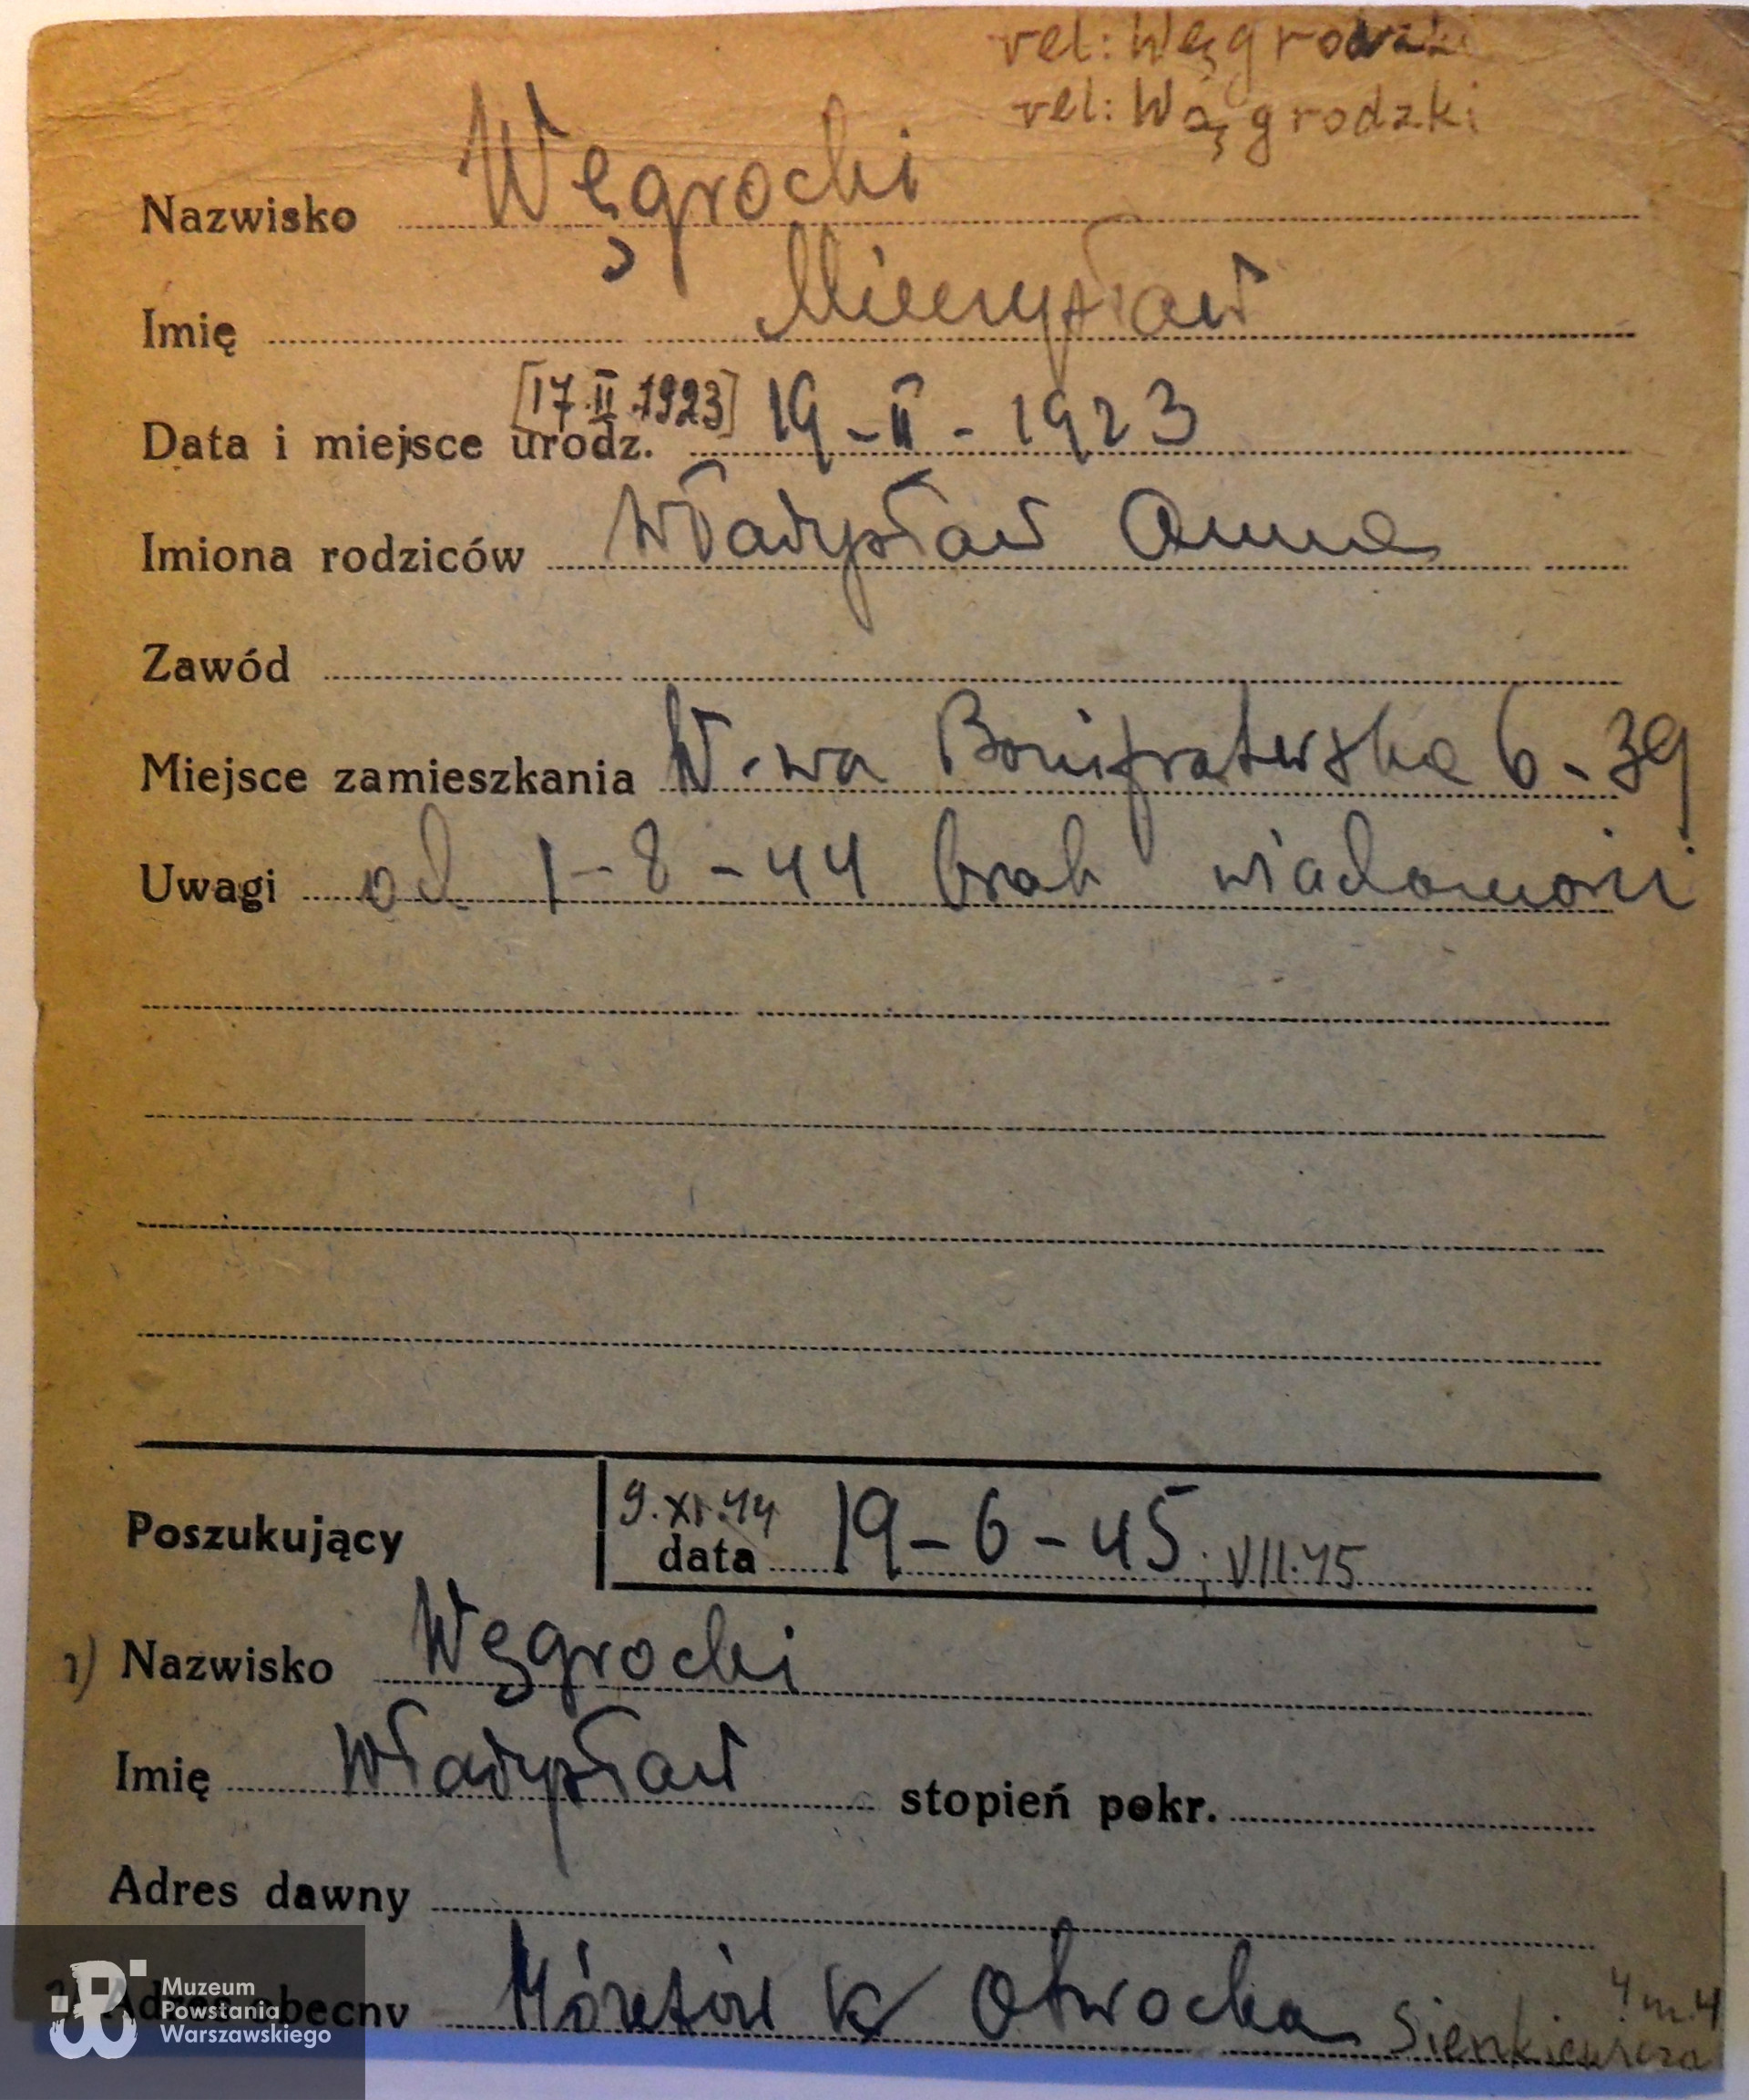 vel: Węgrodzki
vel: Wągrodzki
Nazwisko Węgrocki
Imię Mieczysław
[17.II.1923]
Data i miejsce urodz. 19-II-1923
Imiona rodziców Władysław Anna
Zawód
Miejsce zamieszkania W-wa Bonifraterska 6-39
Uwagi od 1-8-44 brak wiadomości
9.XI.44
Poszukujący data 19-6-45; VII.45
1) Nazwisko Węgrocki
Imię Władysław stopień pokr.
Adres dawny
4 m. 4
Adres obecny k/ Otwocka Sienkiewicza
Muzeum
Powstania
Warszawskiego